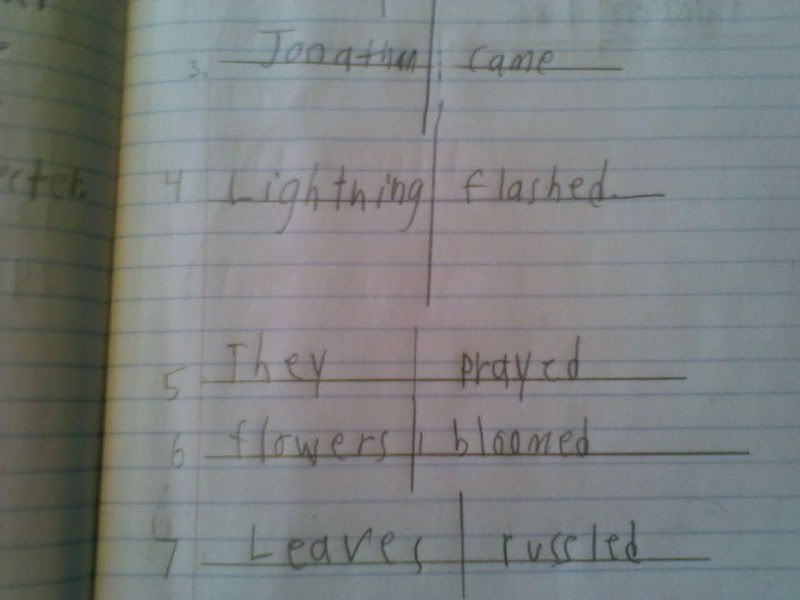 3. Jonathan came
4 Lightning flashed
5 They prayed
6 flowers bloomed
7 Leaves russled